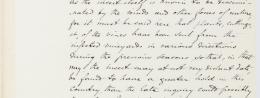 as the insect itself is known to be dissemi-
nated by the winds and other forms of nature
for it must be said here that plants, cuttings
of the vines have been sent from the
infected vineyards in various directions
during the previous seasons so that, in that
way the insect may not very distant but
be found to have a greater hold in this
Country than the late inquiry could possibly